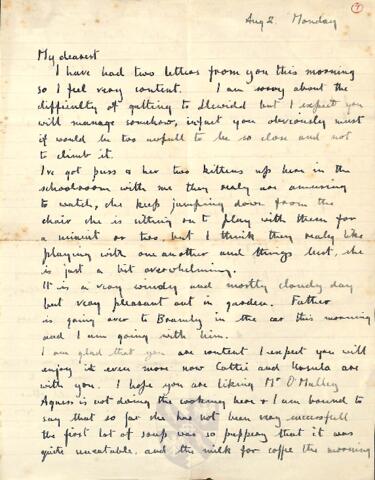 7
Aug 2. Monday
My dearest
I have had two letters from you this morning
so I feel very content. I am sorry about the
difficulty of getting to but I expect you
will manage somehow, infact you obviously must
it would be too awfull to be so close and not
to climb it.
I've got puss & her two kittens up here in the
schoolroom with me they realy are amusing
to watch, she keep jumping down from the
chair she is sitting on to play with them for
a minint or two but I think they realy like
playing with one another and things best, she
is just a bit overwhelming.
It is a very windy and mostly cloudy day
but very pleasant out in garden. Father
is going over to Bramley in the car this morning
and I am going with him.
I am glad that you are content I expect you will
enjoy it even more now Cottie and Ursula are
with you. I hope you are liking Mr O'Malley
Agness is not doing the cooking here & I am bound to
say that so far she has not been very successfull
the first lot of soup was so peppery that it was
quite uneatable. and the milk for coffee this morning